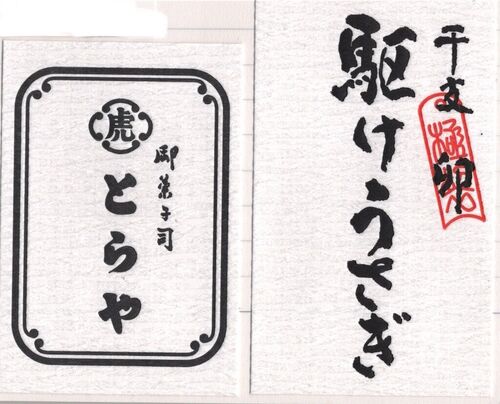 虎
御菓子司
とらや
干支
卯
駆けうさぎ